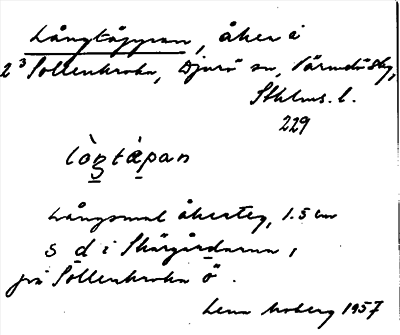 Långtäppan, åker i
2³ Sollenkroka, Djurö sn, Värmdö skg,
Sthlms. l.
229
lòŋtæ̀pan
Långsmal åkerteg, 1.5 km
s d i Skärgårdarna,
på Sollenkroka ö.
Lena Moberg 1957